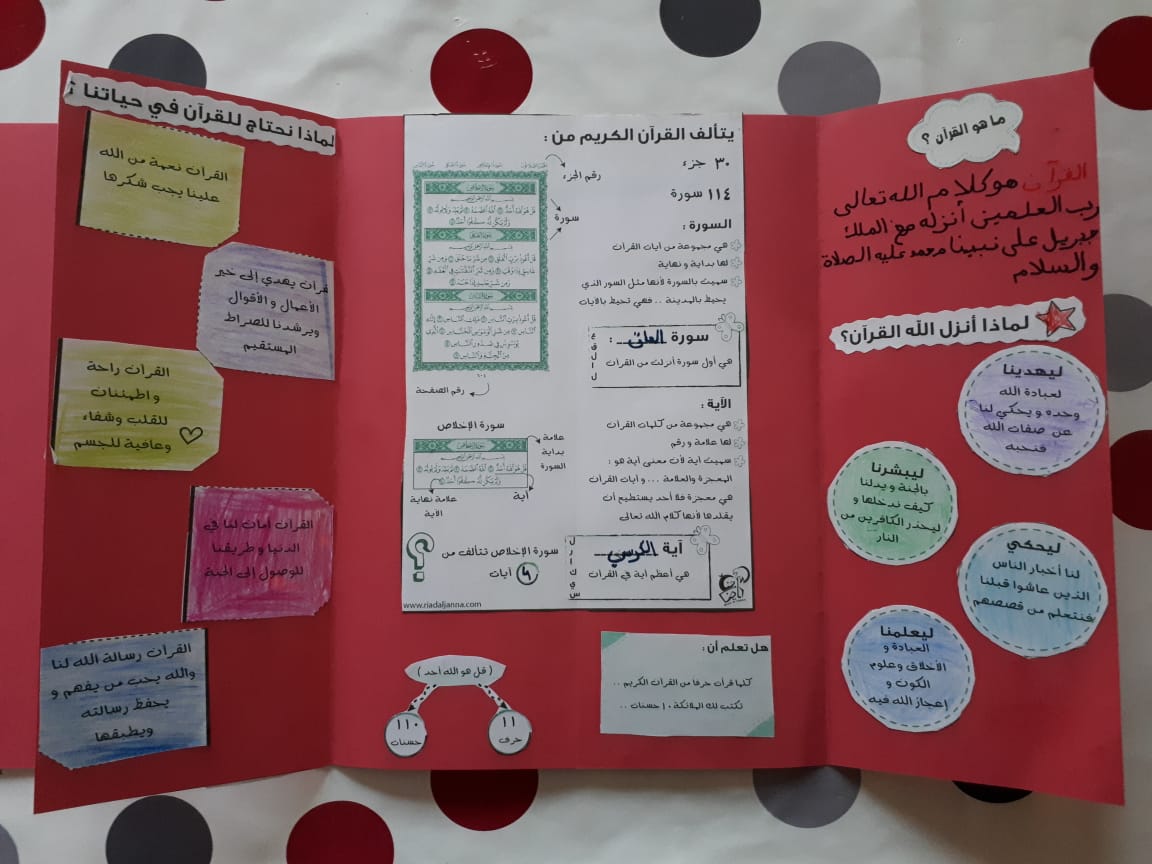 ما هو القرآن ؟
القرآن هو كلام الله تعالى
رب العلمين أنزله مع الملك
جبريل على نبينا محمد عليه الصلاة
والسلام
لماذا أنزل الله القرآن؟
ليهدينا
لعبادة الله
وحده و يحكي لنا
عن صفات الله
فنحبه
ليبشرنا
بالجنة و يدلنا
كيف ندخلها و
ليحذر الكافرين من
النار
ليحكي
لنا أخبار الناس
الذين عاشوا قبلنا
فنتعلم من قصصهم
ليعلمنا
العبادة و
الأخلاق وعلوم
الكون و
إعجاز الله فيه
يتألف القرآن الكريم من :
٣٠ جزء
١١٤ سورة
السورة :
هي مجموعة من آيات القرآن
لها بداية و نهاية
سميت بالسورة لأنها مثل السور الذي
يحيط بالمدينة .. فهي تحيط بالآيات
سورة العلق :
هي أول سورة أنزلت من القرآن
الآية :
هي مجموعة من كلمات القرآن
لها علامة و رقم
سميت آية لأن معنى آية هو :
المعجزة والعلامة ... و آيات القرآن
هي معجزة فلا أحد يستطيع أن
يقلدها لأنها كلام الله تعالى
آية الكرسي
هي أعظم آية في القرآن
رقم الجزء
سورة
رقم الصفحة
٦٠٤
سورة الإخلاص
علامة
بداية
السورة
آية
علامة نهاية
الآية
سورة الإخلاص تتألف من
٤ آيات
www.riadaljanna.com
هل تعلم أن :
كلما قرأت حرفا من القرآن الكريم ..
تكتب لك الملائكة ١٠ حسنات ..
( قل هو الله أحد )
١١
حرف
١١٠
حسنات
لماذا نحتاج للقرآن في حياتنا ؟
القرآن نعمة من الله
علينا يجب شكرها
قرآن يهدي إلى خير
الأعمال و الأقوال
ويرشدنا للصراط
المستقيم
القرآن راحة
و اطمئنان
للقلب وشفاء
وعافية للجسم
القرآن أمان لنا في
الدنيا و طريقنا
للوصول إلى الجنة
القرآن رسالة الله لنا
والله يحب من يفهم و
يحفظ رسالته
ويطبقها